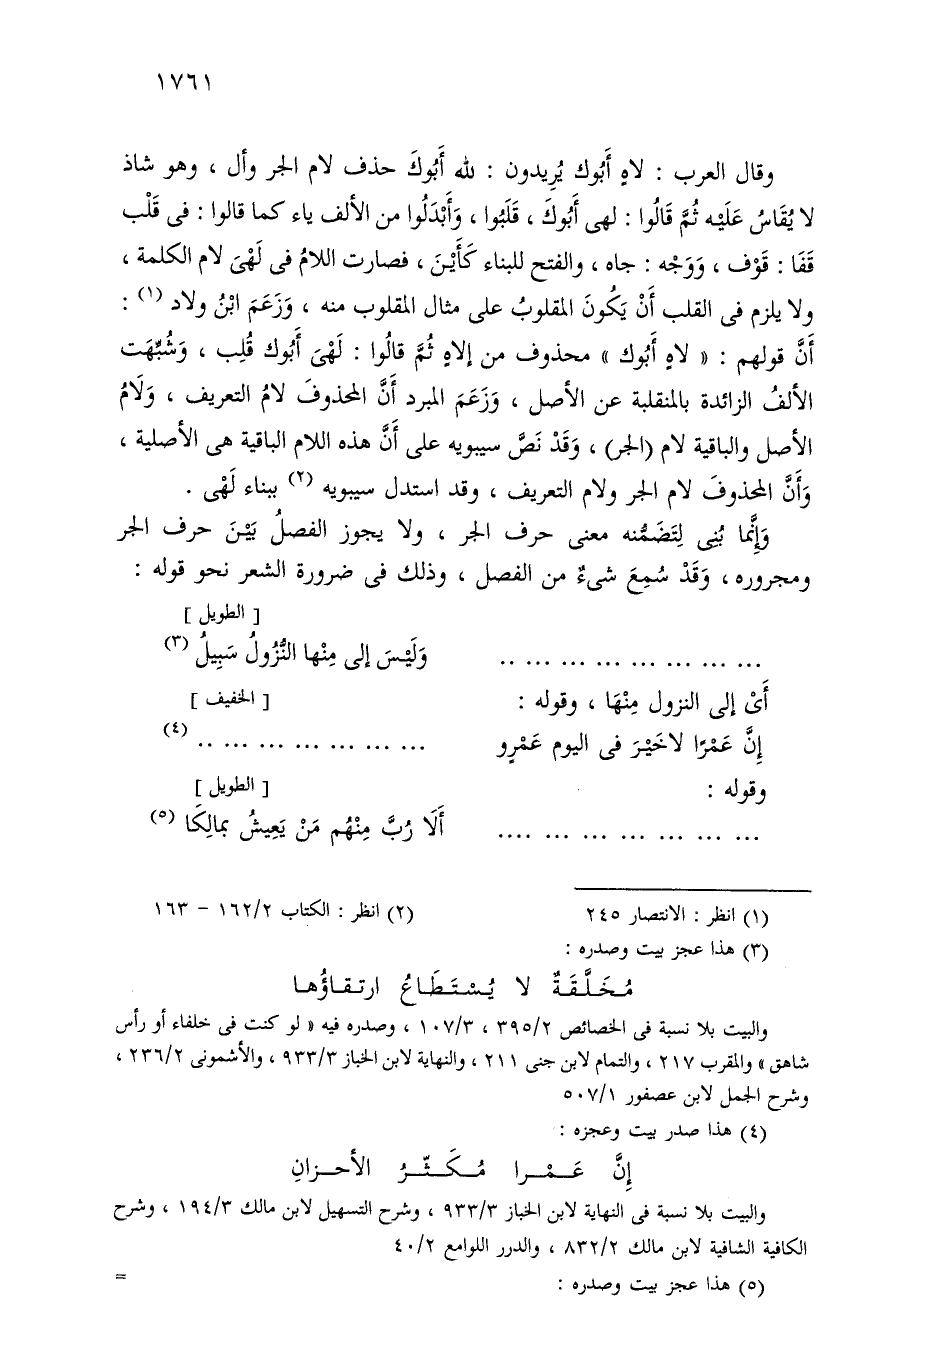 ١٧٦١
وقال العرب : لاهِ أَبُوك يُرِيدون : لله أَبُوكَ حذف لام الجر وأل ، وهو شاذ
لا يُقَاسُ عَلَيْه ثُمَّ قَالُوا : لهى أَبُوكَ ، قَلَبُوا ، وَأَبْدَلُوا من الألف ياء كما قالوا : فى قَلْب
قَفَا : قَوْف ، وَوَجْه : جاه ، والفتح للبناء كَأَيْنَ ، فصارت اللامُ فى لَهْىَ لام الكلمة ،
ولا يلزم فى القلب أَنْ يَكُونَ المقلوبُ على مثال المقلوب منه ، وَزَعَمَ ابْنُ ولاد (١) :
أَنَّ قولهم : « لاهِ أَبُوك » محذوف من إلاهِ ثُمَّ قالُوا : لَهْىَ أَبُوك قُلِب ، وَشُبِّهَت
الألفُ الزائدة بالمنقلبة عن الأصل ، وَزَعَمَ المبرد أَنَّ المحذوفَ لامُ التعريف ، وَلَامُ
الأصل والباقية لام (الجر) ، وَقَدْ نَصَّ سيبويه على أَنَّ هذه اللام الباقية هى الأصلية ،
وَأَنَّ المحذوفَ لام الجر ولام التعريف ، وقد استدل سيبويه (٢) ببناء لَهْى .
وَإِنَّما بُنِى لِتَضَمُّنه معنى حرف الجر ، ولا يجوز الفصلُ بَيْنَ حرف الجر
ومجروره ، وَقَدْ سُمِعَ شىءٌ من الفصل ، وذلك فى ضرورة الشعر نحو قوله :
[ الطويل ]
... ... ... ... ... ... ... ... .. وَلَيْسَ إلى مِنْها النُّزُولُ سَبِيلُ (٣)
أَىْ إلى النزول مِنْهَا ، وقوله : [ الخفيف ]
إِنَّ عَمْرًا لاخَيْرَ فى اليوم عَمْرٍو ... ... ... ... ... ... .. (٤)
وقوله : [ الطويل ]
... ... ... ... ... ... ... .... أَلَا رُبَّ مِنْهُم مَنْ يَعِيشُ بمالِكَا (٥)
(١) انظر : الانتصار ٢٤٥ (٢) انظر : الكتاب ١٦٢/٢ – ١٦٣
(٣) هذا عجز بيت وصدره :
مُخَلَّقَةٌ لا يُسْتَطَاعُ ارتقاؤُها
والبيت بلا نسبة فى الخصائص ٣٩٥/٢ ، ١٠٧/٣ ، وصدره فيه « لو كنت فى خلفاء أو رأس
شاهق » والمقرب ٢١٧ ، والتمام لابن جنى ٢١١ ، والنهاية لابن الخباز ٩٣٣/٣ ، والأشمونى ٢٣٦/٢ ،
وشرح الجمل لابن عصفور ٥٠٧/١
(٤) هذا صدر بيت وعجزه :
إِنَّ عَمْرا مُكَثِّرُ الأحزانِ
والبيت بلا نسبة فى النهاية لابن الخباز ٩٣٣/٣ ، وشرح التسهيل لابن مالك ١٩٤/٣ ، وشرح
الكافية الشافية لابن مالك ٨٣٢/٢ ، والدرر اللوامع ٤٠/٢
(٥) هذا عجز بيت وصدره : =